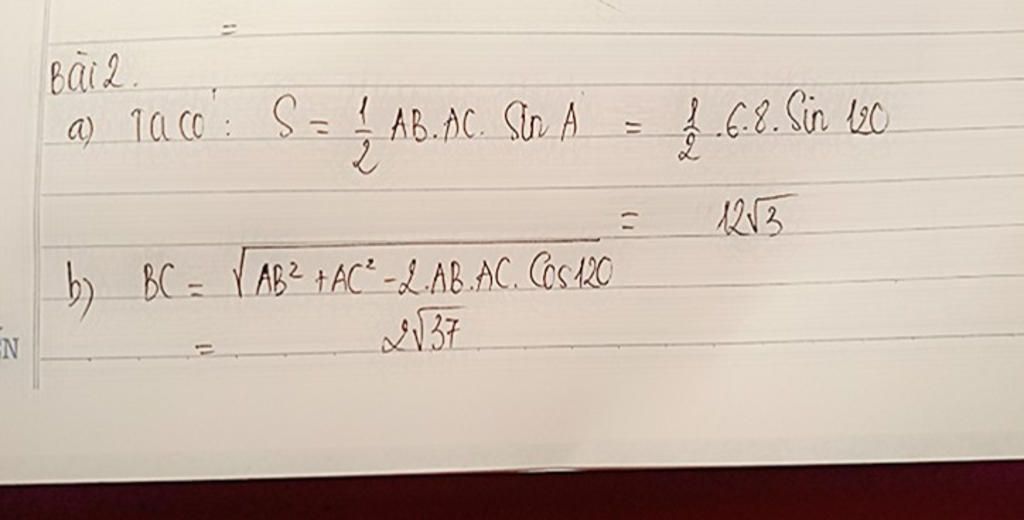 =
Bài 2.
a) Ta có: S = 1/2 AB.AC. Sin A = 1/2 .6.8. Sin 120
= 12√3
b) BC = √(AB² + AC² - 2.AB.AC. Cos 120)
= 2√37